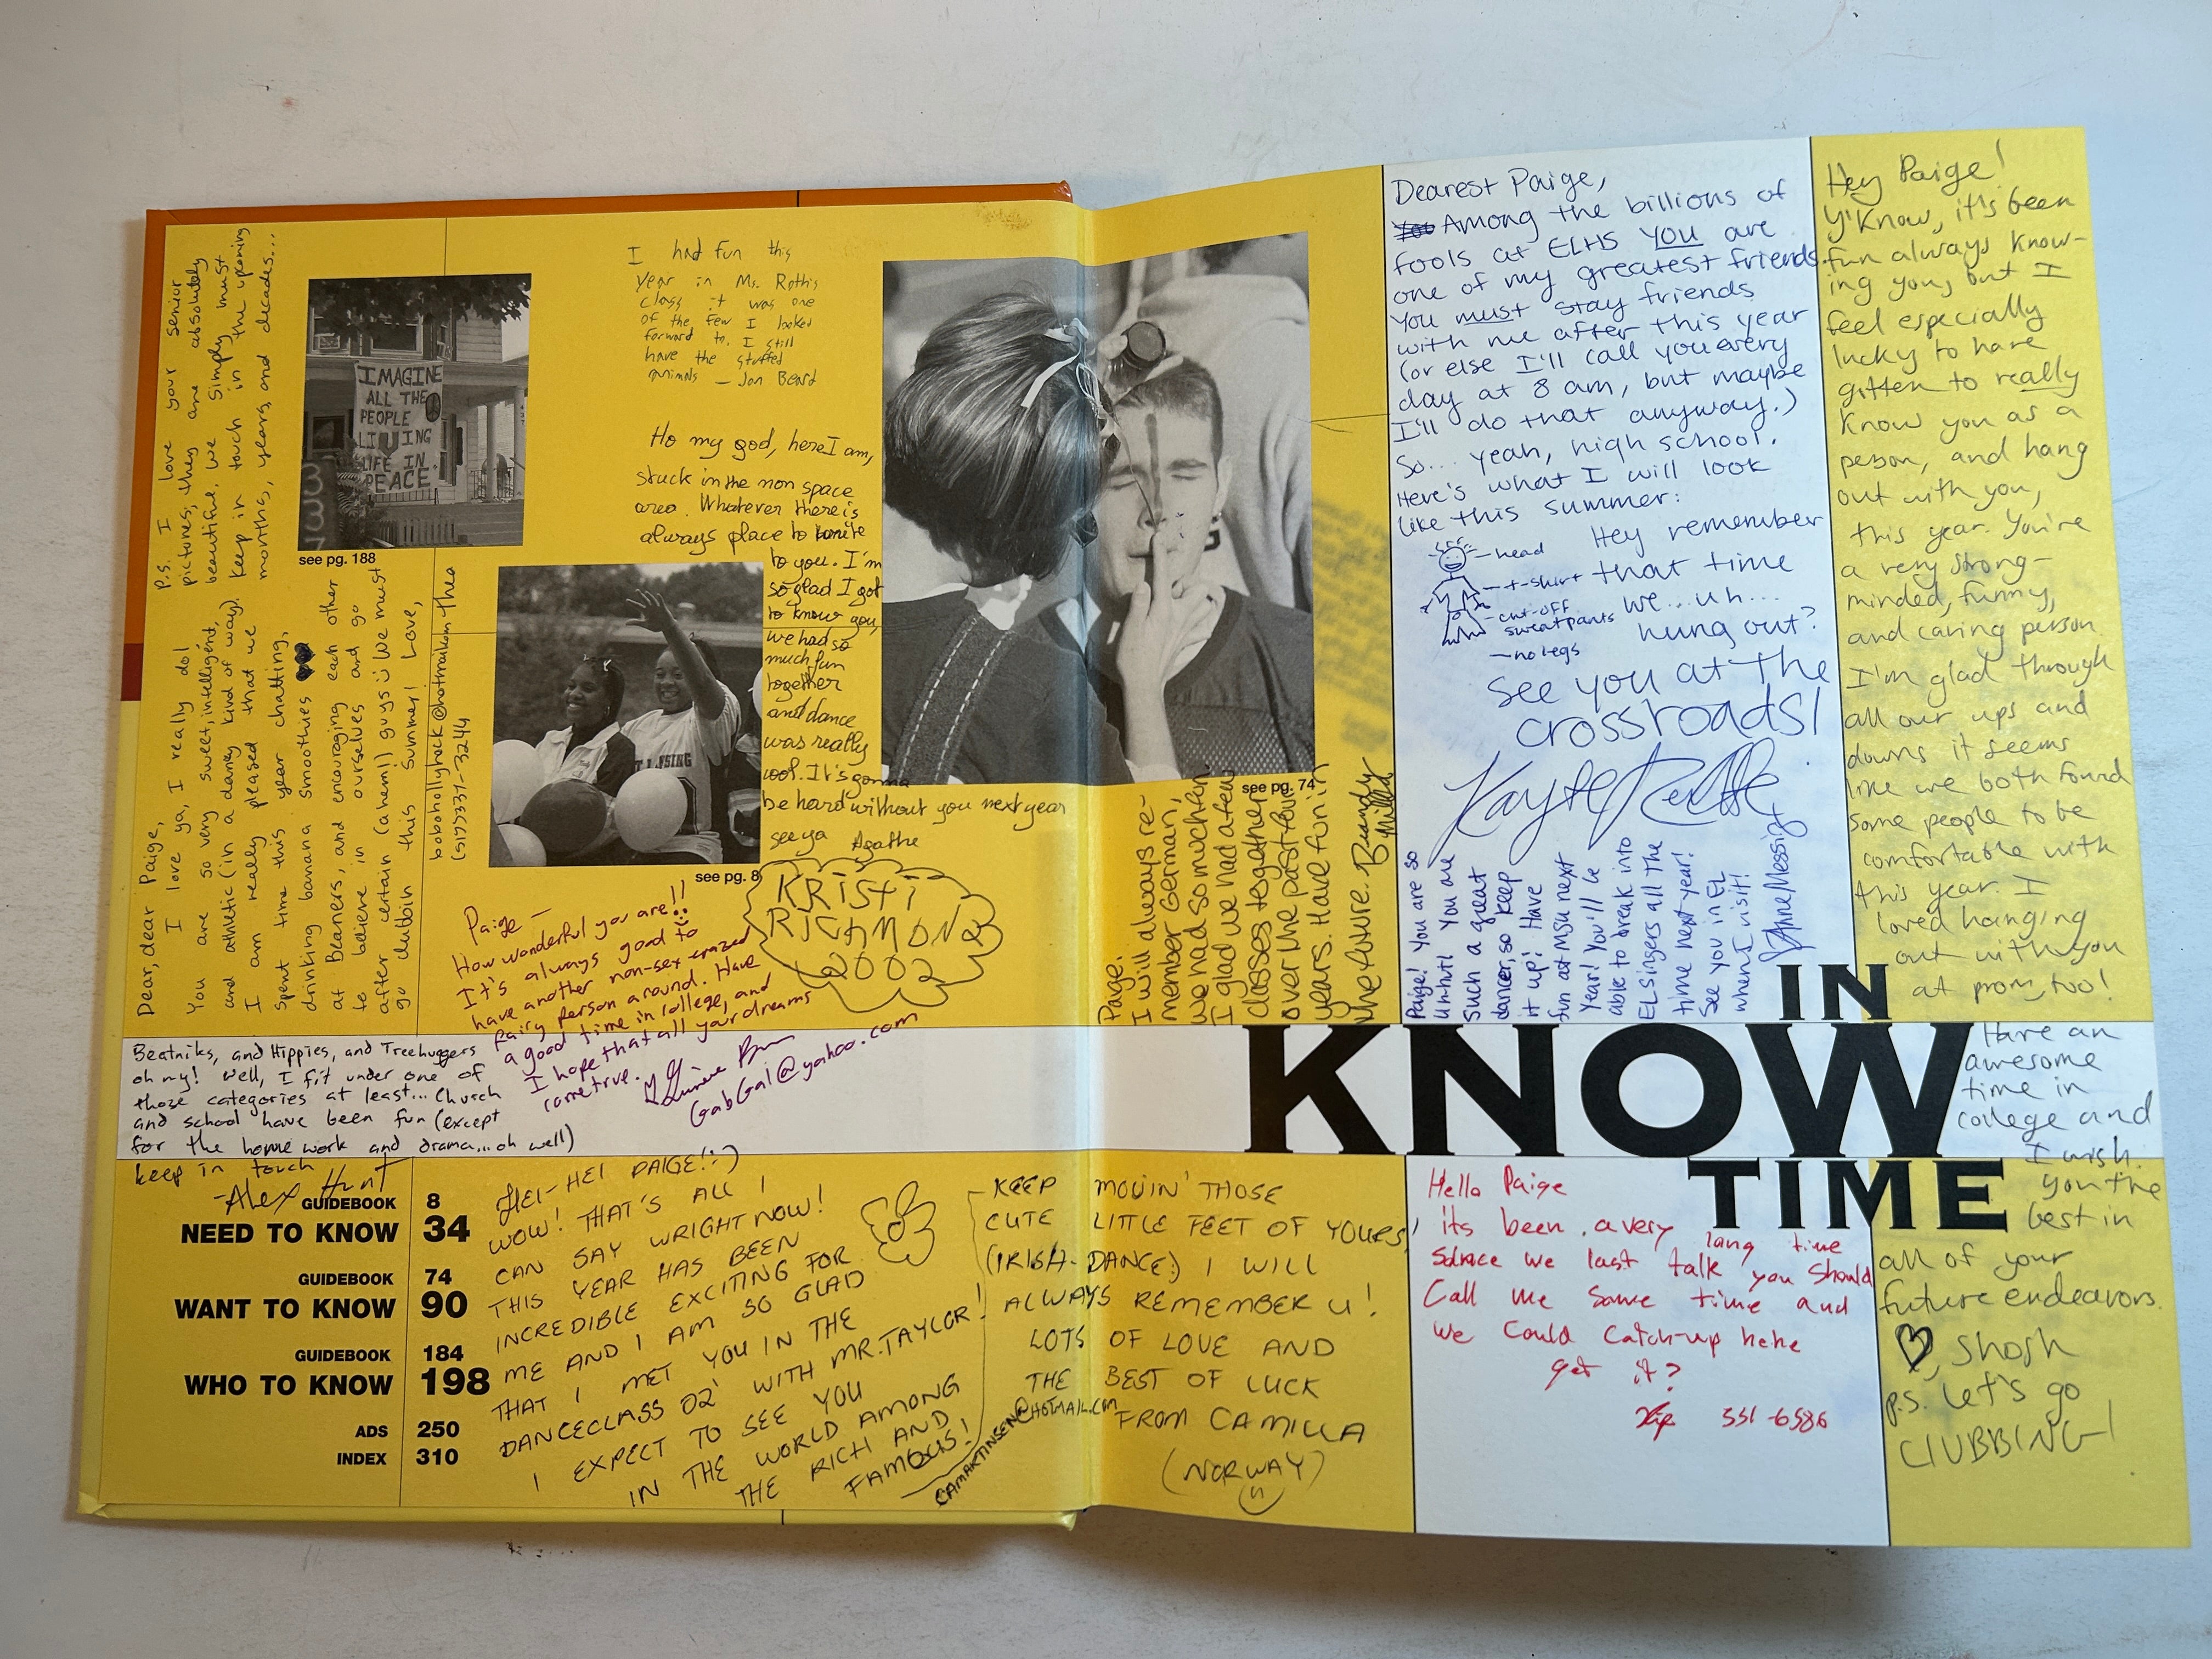 Dear, dear Paige,
I love ya, I really do!
You are so very sweet, intelligent,
and athletic (in a dancey kind of way).
I am really pleased that we
spent time this year chatting,
drinking banana smoothies
at Beaners, and encouraging each other
to believe in ourselves and go
after certain (ahem!) guys We must
go clubbin this summer! Love,
Thea
bobohollyhock@hotmail.com
(517)337-3244
P.S. I love your senior
pictures, they are absolutely
beautiful. We simply must
keep in touch in the upcoming
months, years, and decades...
IMAGINE
ALL THE
PEOPLE
LIVING
LIFE IN
PEACE
see pg. 188
I had fun this
year in Ms. Roth's
class it was one
of the few I looked
forward to. I still
have the stuffed
animals — Jon Beard
Ho my god, here I am,
stuck in the non space
area. Whatever there is
always place to write
to you. I'm
so glad I got
to know you,
we had so
much fun
together
and dance
was really
cool. It's gonna
be hard without you next year
see ya Agathe
see pg. 8
KRISTI
RICHMOND
2002
Paige —
How wonderful you are!!
It's always good to
have another non-sex-crazed
person around. Have
a good time in college, and
I hope that all your dreams
come true.
GabGal@yahoo.com
Beatniks, and Hippies, and Treehuggers
oh my! Well, I fit under one of
those categories at least... Church
and school have been fun (except
for the homework and drama...oh well)
keep in touch
-Alex Hunt
GUIDEBOOK 8
NEED TO KNOW 34
GUIDEBOOK 74
WANT TO KNOW 90
GUIDEBOOK 184
WHO TO KNOW 198
ADS 250
INDEX 310
HEI-HEI PAIGE! :-)
WOW! THAT'S ALL I
CAN SAY WRIGHT NOW!
THIS YEAR HAS BEEN
INCREDIBLE EXCITING FOR
ME AND I AM SO GLAD
THAT I MET YOU IN THE
DANCECLASS 02' WITH MR. TAYLOR!
I EXPECT TO SEE YOU
IN THE WORLD AMONG
THE RICH AND
FAMOUS!
CAMARTINSEN@HOTMAIL.COM
KEEP MOVIN' THOSE
CUTE LITTLE FEET OF YOURS!
(IRISH-DANCE:) I WILL
ALWAYS REMEMBER U!
LOTS OF LOVE AND
THE BEST OF LUCK
FROM CAMILLA
(NORWAY)
see pg. 74
Paige,
I will always re-
member German,
we had so much fun.
I glad we had a few
classes together
over the past four
years. Have fun in
the future. Brandy
Miller
Dearest Paige,
Among the billions of
fools at ELHS YOU are
one of my greatest friends.
You must stay friends
with me after this year
(or else I'll call you every
day at 8 am, but maybe
I'll do that anyway.)
So... yeah, high school.
Here's what I will look
like this summer:
head
t-shirt
cut-off
sweatpants
no legs
Hey remember
that time
we...uh...
hung out?
See you at the
crossroads!
Paige! You are so
uh-huh! You are
such a great
dancer, so keep
it up! Have
fun at MSU next
year! You'll be
able to break into
EL singers all the
time next year!
See you in EL
when I visit!
Anne Messing
Hey Paige!
Y'Know, it's been
fun always know-
ing you, but I
feel especially
lucky to have
gitten to really
know you as a
person, and hang
out with you,
this year. You're
a very strong-
minded, funny,
and caring person.
I'm glad through
all our ups and
downs it seems
like we both found
some people to be
comfortable with
this year. I
loved hanging
out with you
at prom, too!
Have an
awesome
time in
college and
I wish
you the
best in
all of your
future endeavors.
♡, Shosh
p.s. Let's go
CLUBBING!
IN
KNOW
TIME
Hello Paige
its been a very long time
since we last talk you should
Call me some time and
we could catch-up hehe
get it?
351-6586